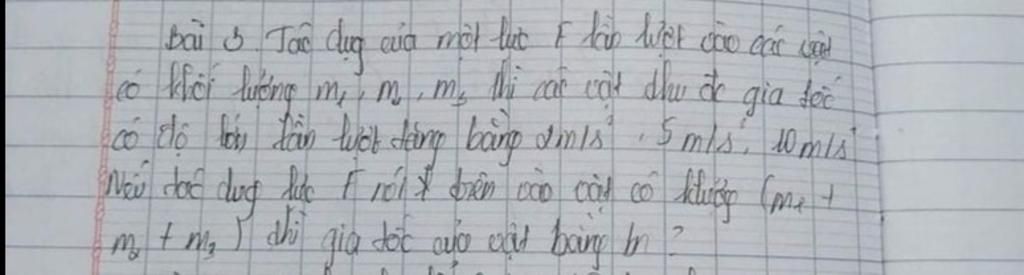 Bài 3 Tác dụg của một lực F lần lượt vào các vật
có khối lượng m₁, m₂, m₃ thì các vật thu đc gia tốc
có độ lớn lần lượt bằng 2m/s², 5m/s², 10m/s²
Nếu tác dụg lực F nói trên vào vật có klượg (m₁ +
m₂ + m₃) thì gia tốc của vật bằng bn?